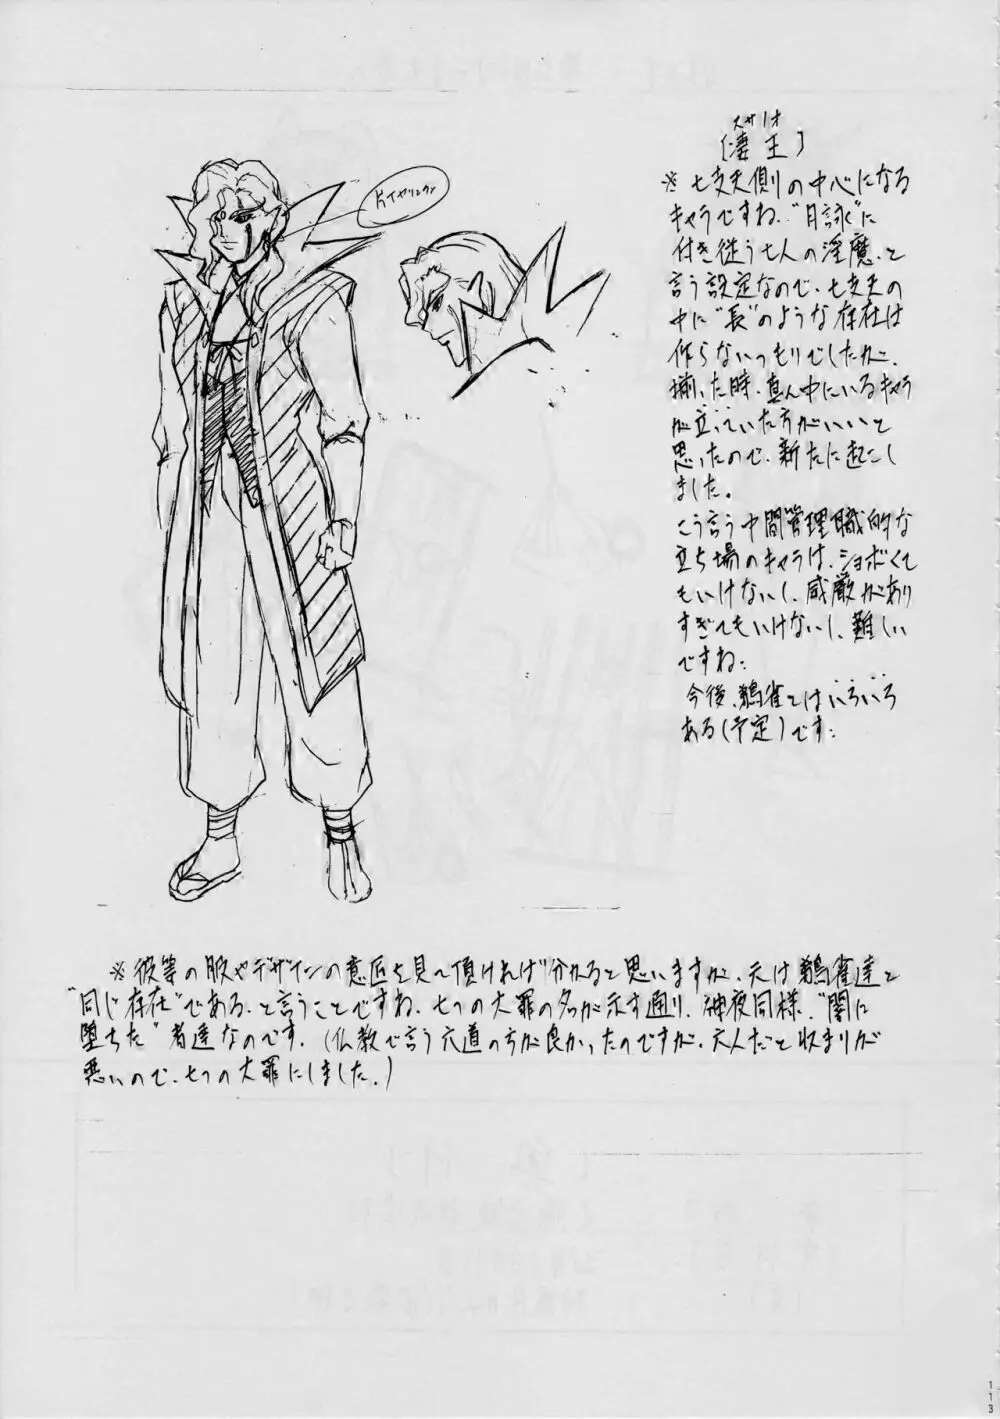 スサノオ
[凄王]
片イヤリング
※ 七支天側の中心になる
キャラですね. "月詠"に
付き従う七人の淫魔、と
言う設定なので、七支天の
中に"長"のような存在は
作らないつもりでしたが、
揃った時、真ん中にいるキャラ
が立っていた方がいいと
思ったので、新たに起こし
ました。
こう言う中間管理職的な
立ち場のキャラは、ショボくて
もいけないし、威厳があり
すぎてもいけないし、難しい
ですね…
今後、鵺雀とはいろいろ
ある(予定)です…
※彼等の服やデザインの意匠を見て頂ければ分かると思いますが、元は鵺雀達と
"同じ存在"である、と言うことですね. 七つの大罪の名が示す通り、神夜同様、"闇に
堕ちた"者達なのです. (仏教で言う六道の方が良かったのですが、六人だと収まりが
悪いので、七つの大罪にしました.)
113